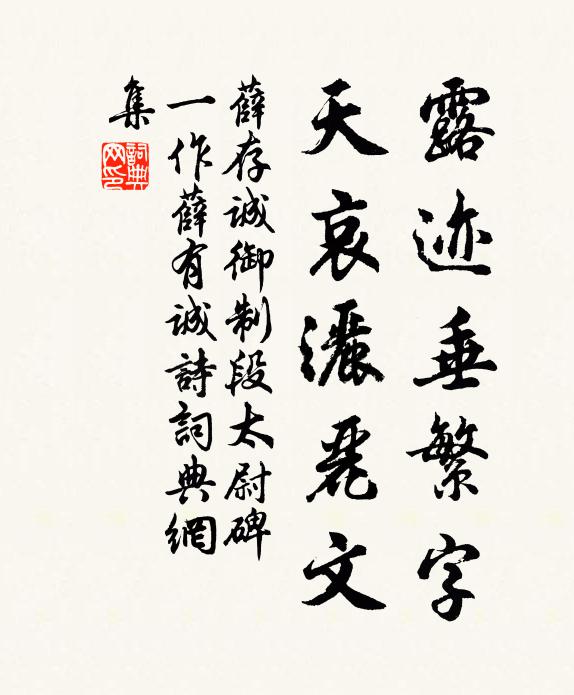 露迹垂繁字
天哀灑麗文
薛存诚御制段太尉碑
一作薛有诚詩詞典網
集
詞典网印